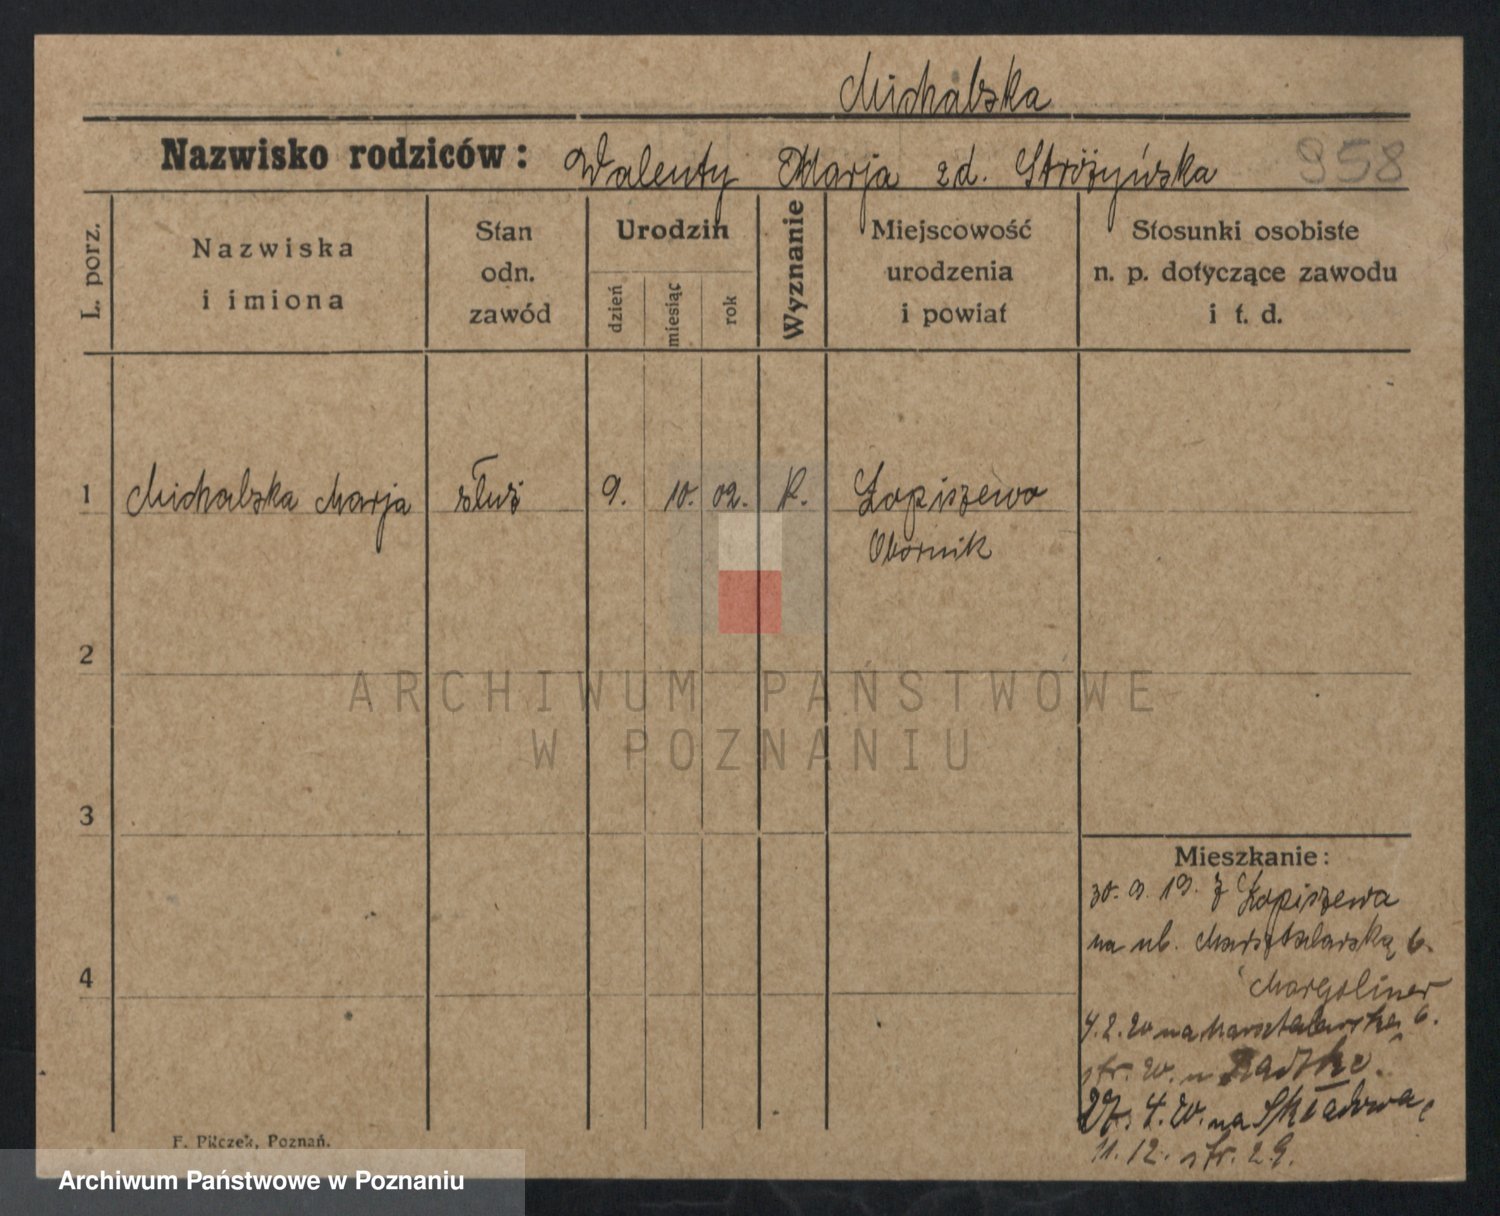 Michalska
Nazwisko rodziców: Walenty Marja zd. Stróżyńska 958
L. porz.
Nazwiska i imiona
Stan odn. zawód
Urodzin
dzień miesiąc rok
Wyznanie
Miejscowość urodzenia i powiat
Stosunki osobiste n. p. dotyczące zawodu i t. d.
1 Michalska Marja służ 9. 10. 02. K. Łopiszewo
Obornik
2
ARCHIWUM PAŃSTWOWE
W POZNANIU
3
4
Mieszkanie:
30. 9. 19. z Łopiszewa
na ul. Marsztalarską 6.
Margoliner
4.2.20 na Marsztalarską 6.
str. 20. u Radtke.
27. 4. 20. na Składową
11. 12. str. 29.
F. Pilczek, Poznań.
Archiwum Państwowe w Poznaniu